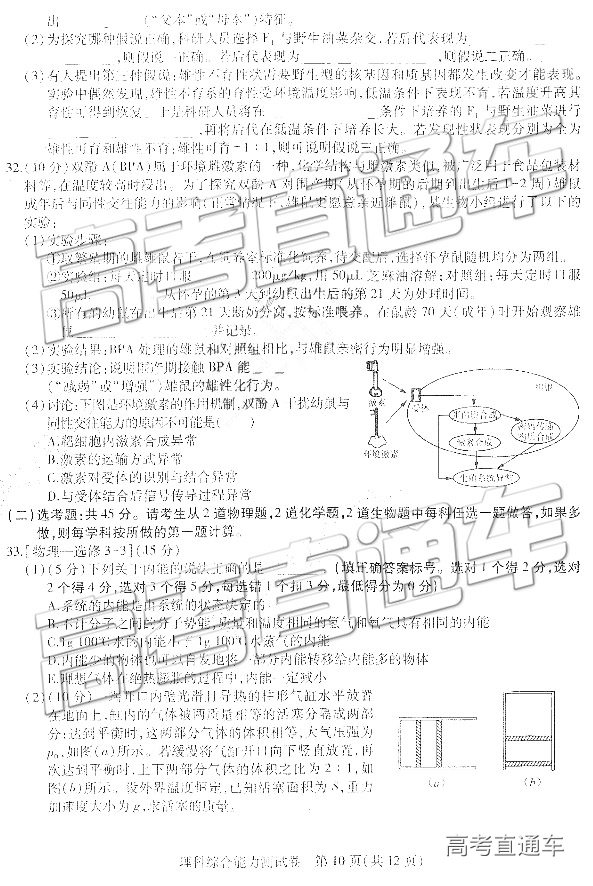 出 (“父本”或“母本”)特征。
(2)为探究哪种假说正确,科研人员选择F₁与野生油菜杂交,若后代表现为
,则假说一正确。若后代表现为 ,则假说二正确。
(3)有人提出第三种假说:雄性不育性状需要野生型的核基因和质基因都发生改变才能表现。
实验中偶然发现,雄性不育系的育性受环境温度影响,低温条件下表现不育,若温度升高其
育性可得到恢复。于是科研人员将在 条件下培养的F₁与野生油菜进行
,再将后代在低温条件下培养长大。若发现性状表现分别为全为
雄性可育和雄性不育:雄性可育=1:1,则可说明假说三正确。
32.(10分)双酚A(BPA)属于环境雌激素的一种,化学结构与雌激素类似,被广泛用于食品包装材
料等,在温度较高时浸出。为了探究双酚A对围产期(从怀孕期的后期到出生后1-2周)雄鼠
成年后与同性交往能力的影响(正常情况下,雄鼠更愿意亲近雌鼠),某生物小组进行了以下的
实验:
(1)实验步骤:
随机均分为两组。
②实验组:每天定时口服 200μg/kg,用50μL芝麻油溶解;对照组:每天定时口服
50μL ,从怀孕的第3天到幼鼠出生后的第21天为处理时间。
③所有的幼鼠在出生后第21天断奶分窝,按标准喂养。在鼠龄70天(成年)时开始观察雄
并记录。
(2)实验结果:BPA处理的雄鼠和对照组相比,与雄鼠亲密行为明显增强。
(3)实验结论:说明围产期接触BPA能
(“减弱”或“增强”)雄鼠的雄性化行为。
(4)讨论:下图是环境激素的作用机制,双酚A干扰幼鼠与
同性交往能力的原因不可能是( )
A.超细胞内激素合成异常
B.激素的运输方式异常
C.激素对受体的识别与结合异常
D.与受体结合后信号传导过程异常
激素
环境激素
激素合成
(二)选考题:共45分。请考生从2道物理题,2道化学题,2道生物题中每科任选一题做答,如果多
做,则每学科按所做的第一题计算。
33.[物理—选修3-3](15分)
(1)(5分)下列关于内能的说法正确的是 (填正确答案标号。选对1个得2分,选对
2个得4分,选对3个得5分,每选错1个扣3分,最低得分为0分)
A.系统的内能是由系统的状态决定的
B.不计分子之间的分子势能,质量和温度相同的氢气和氧气具有相同的内能
C.1g 100℃水的内能小于1g 100℃水蒸气的内能
D.内能少的物体也可以自发地将一部分内能转移给内能多的物体
E.理想气体在绝热膨胀的过程中,内能一定减小
(2)(10分)一端开口内壁光滑且导热的柱形气缸水平放置
在地面上,缸内的气体被两质量相等的活塞分隔成两部
分;达到平衡时,这两部分气体的体积相等,大气压强为
p₀,如图(a)所示。若缓慢将气缸开口向下竖直放置,再
次达到平衡时,上下两部分气体的体积之比为2:1,如
图(b)所示。设外界温度恒定,已知活塞面积为S,重力
加速度大小为g,求活塞的质量。
(a)
(b)
理科综合能力测试卷 第10页(共12页)
高考直通车
高考直通车
高考直通车